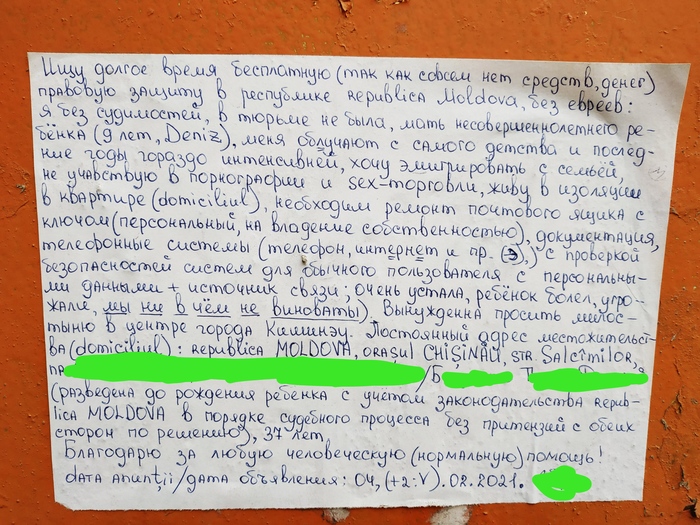 Ищу долгое время бесплатную (так как совсем нет средств, денег)
правовую защиту в республике Republica Moldova, без евреев:
я без судимостей, в тюрьме не была, мать несовершеннолетнего ре-
бёнка (9 лет, Deniz), меня облучают с самого детства и послед-
ние годы гораздо интенсивней, хочу эмигрировать с семьёй,
не учавствую в порнографии и sex-торговли, живу в изоляции
в квартире (domiciliul), необходим ремонт почтового ящика с
ключом (персональный, на владение собственностью), документация,
телефонные системы (телефон, интернет и пр. (Э),) с проверкой
безопасностей систем для обычного пользователя с персональны-
ми данными + источник связи; очень устала, ребёнок болел, угро-
жали, мы ни в чём не виноваты). Вынужденна просить милос-
тыню в центре города Кишинэу. Постоянный адрес местожительст-
ва (domiciliul): republica MOLDOVA, ORAȘUL CHIȘINĂU, STR. SALCÎMILOR,
/Б
(разведена до рождения ребенка с учетом законодательства Repub-
lica MOLDOVA в порядке судебного процесса без притензий с обеих
сторон по решению), 37 лет
Благодарю за любую человеческую (нормальную) помощь!
data anunții/дата объявления: 04, (+2:V). 02. 2021.